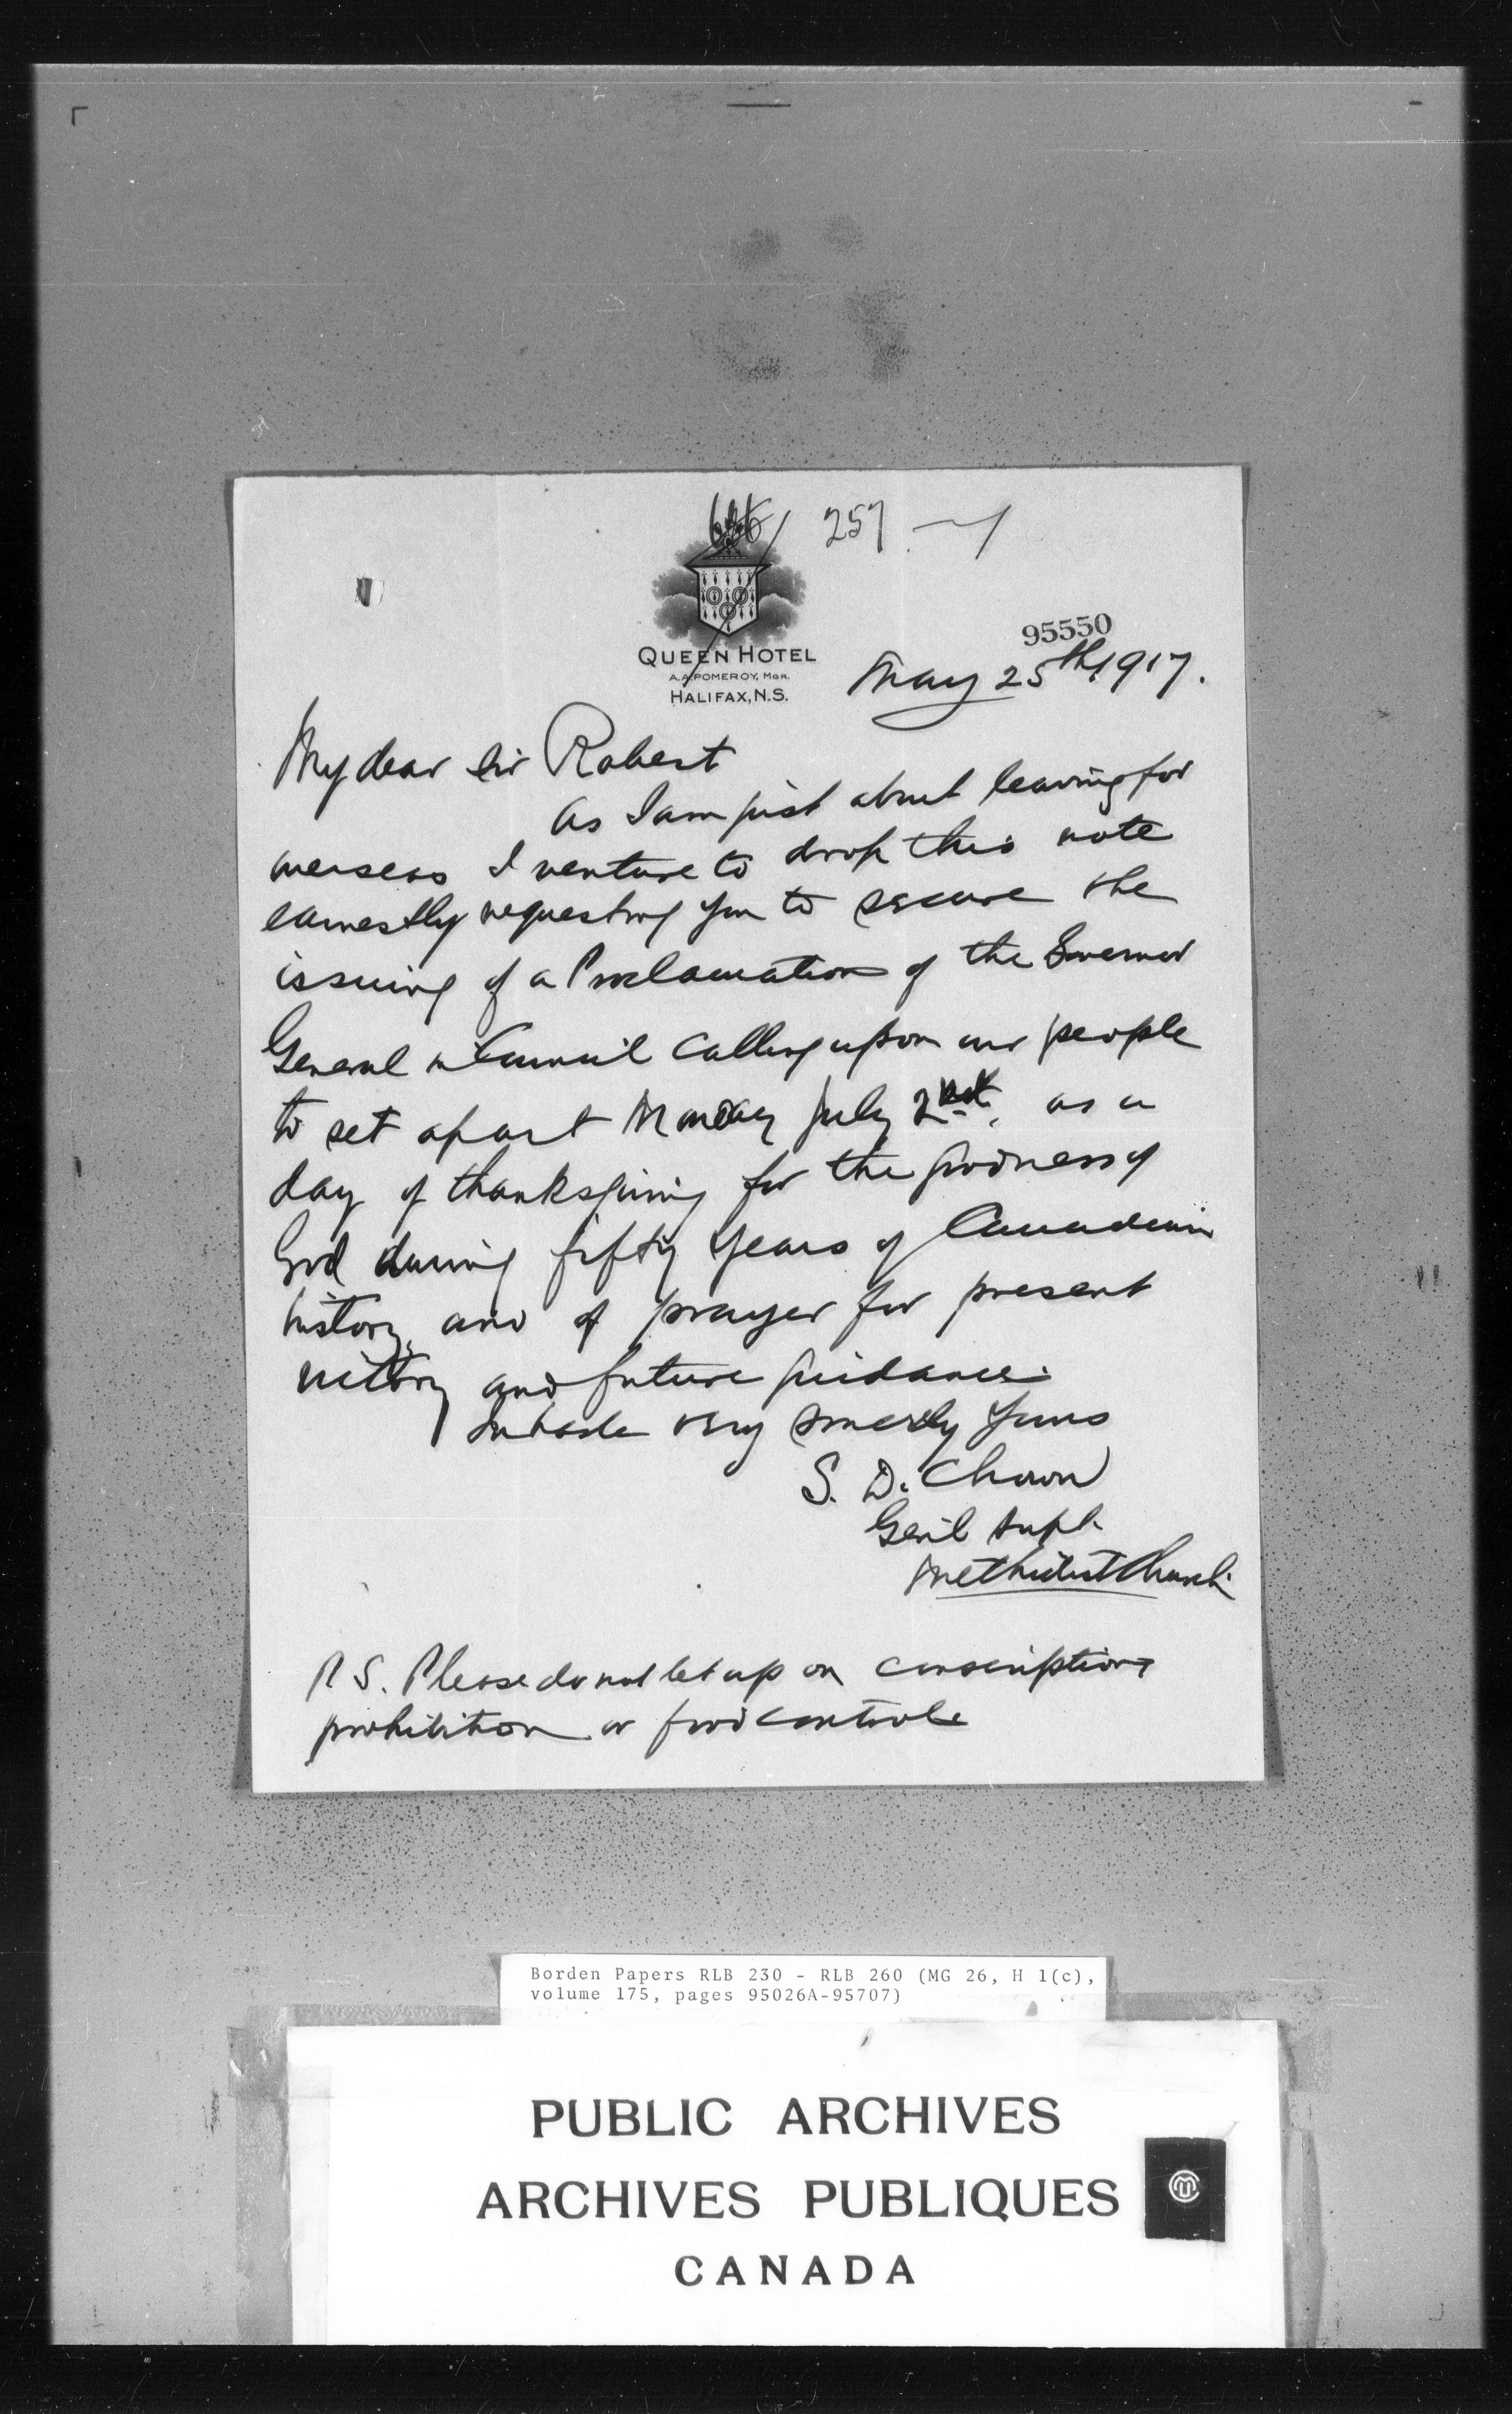 257
QUEEN HOTEL
A.A. POMEROY, MGR.
HALIFAX, N.S.
95550
May 25th 1917.
My dear Sir Robert
As I am just about leaving for
overseas I venture to drop this note
earnestly requesting you to secure the
issuing of a Proclamation of the Governor
General in Council calling upon our people
to set apart Monday July 2nd. as a
day of thanksgiving for the goodness of
God during fifty years of Canadian
history, and of prayer for present
victory and future guidance.
In haste very sincerely yours
S. D. Chown
Genl Supt.
Methodist Church.
P.S. Please do not let up on conscription
prohibition or food control
Borden Papers RLB 230 - RLB 260 (MG 26, H 1(c),
volume 175, pages 95026A-95707)
PUBLIC ARCHIVES
ARCHIVES PUBLIQUES
CANADA